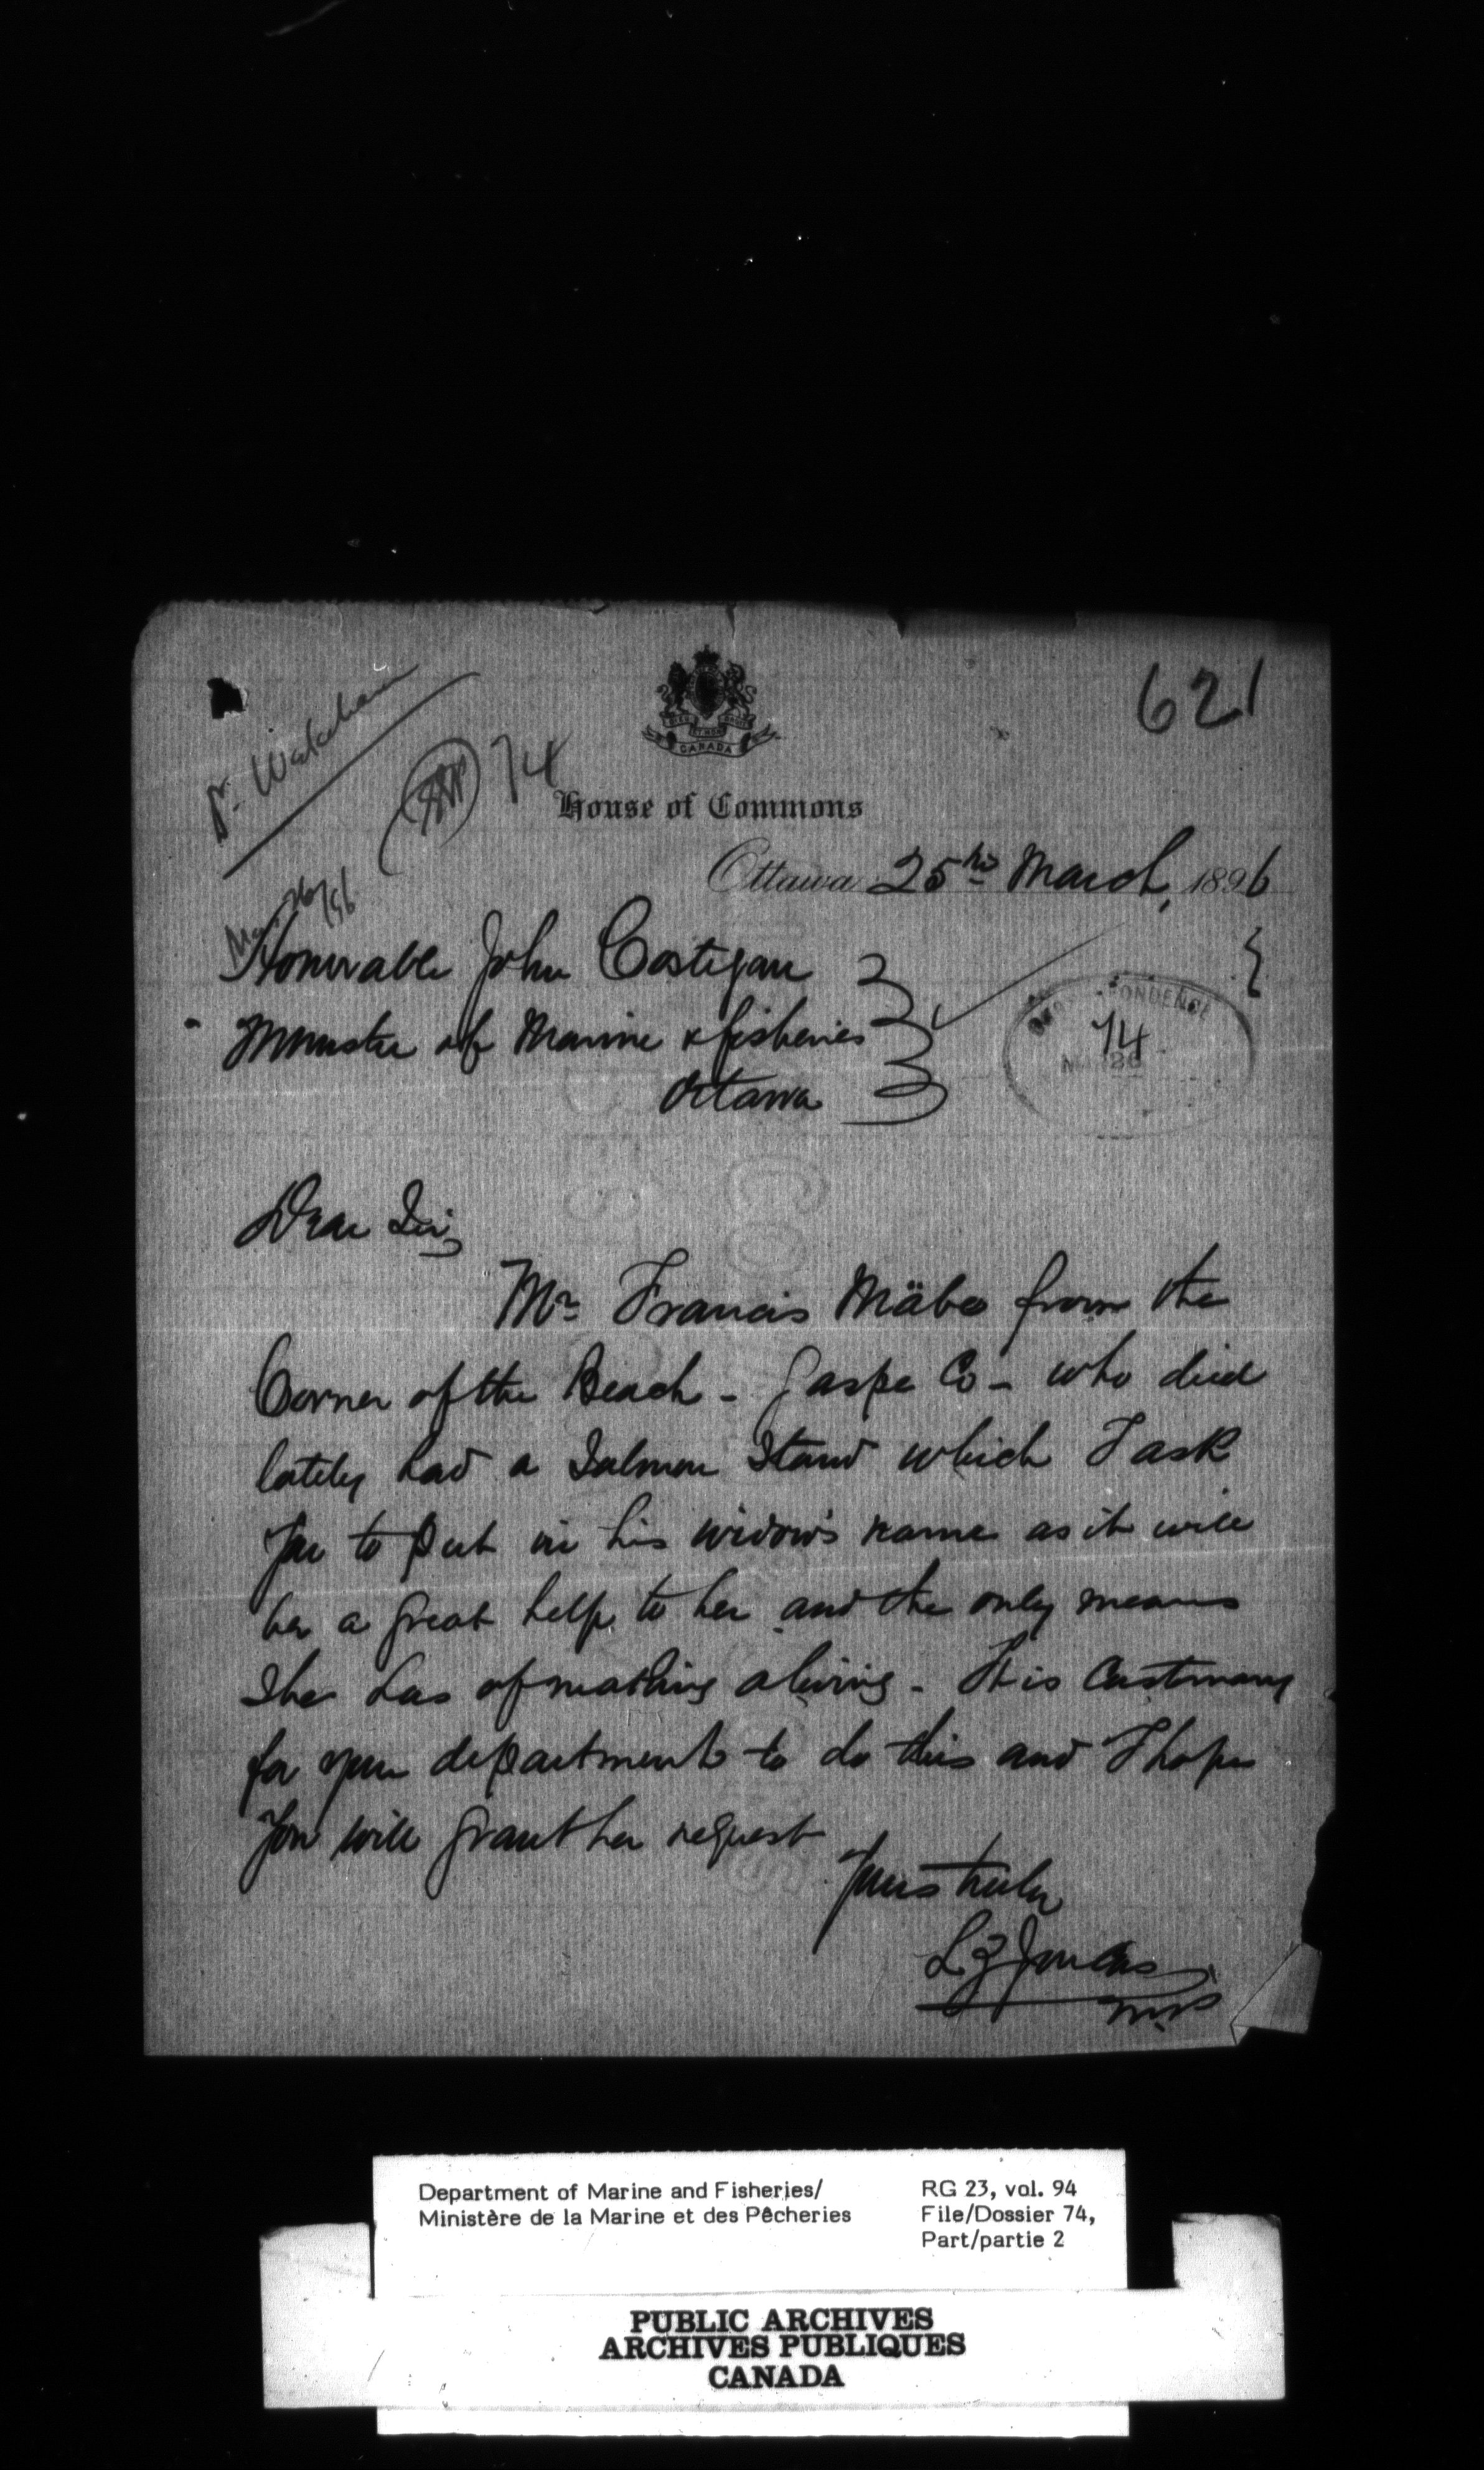 621
Dr. Wakeham
74
CANADA
House of Commons
Ottawa 25th March, 1896
Mar 26/96
Honorable John Costigan
Minister of Marine & fisheries
Ottawa
74
Dear Sir,
Mr Francis Mäbe from the
Corner of the Beach - Gaspe Co - who died
lately had a Salmon Stand which I ask
You to put in his widow's name as it will
be a great help to her and the only means
She has of making a living - It is Customary
for your department to do this and I hope
You will grant her request
Yours truly
L Z Joncas
MP
Department of Marine and Fisheries/
Ministère de la Marine et des Pêcheries
RG 23, vol. 94
File/Dossier 74,
Part/partie 2
PUBLIC ARCHIVES
ARCHIVES PUBLIQUES
CANADA